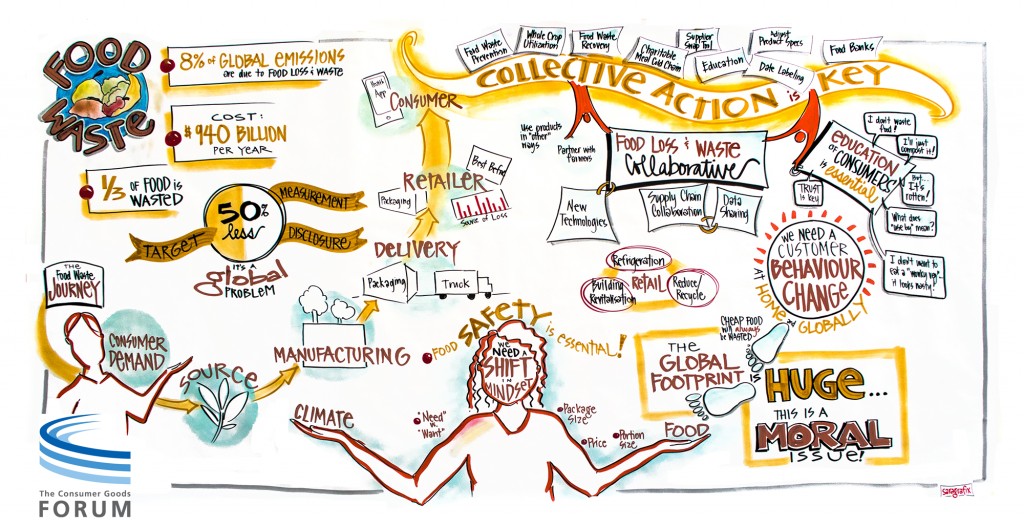 FOOD
WASTE
8% of GLOBAL EMISSIONS
are due to FOOD LOSS & WASTE
COST:
$940 BILLION
PER YEAR
1/3 of FOOD is
WASTED
50%
less
TARGET
MEASUREMENT
DISCLOSURE
IT'S A
global
PROBLEM
THE
Food Waste
JOURNEY
CONSUMER
DEMAND
SOURCE
MANUFACTURING
DELIVERY
Packaging
Truck
RETAILER
Packaging
Source of Loss
CONSUMER
App
COLLECTIVE ACTION is KEY
Food Waste
Prevention
Whole Crop
Utilization
Food Waste
Recovery
Charitable
Meal Cold Chain
Supplier
Swap Tool
Education
Adjust
Product Specs
Date Labeling
Food Banks
Use products
in "other"
ways
Partner with
farmers
FOOD LOSS & WASTE
Collaborative
New
Technologies
Supply Chain
Collaboration
Data
Sharing
EDUCATION
OF CONSUMERS'
is essential
TRUST
is key
I don't waste
food!
I'll just
compost it!
But...
It's
rotten!
What does
"use by" mean?
I don't want to
it looks nasty!
Refrigeration
Building
Revitalisation
RETAIL
Reduce/
Recycle
WE NEED A
CUSTOMER
BEHAVIOUR
CHANGE
AT HOME and GLOBALLY
FOOD SAFETY is ESSENTIAL!
WE
NEED A
SHIFT
IN
MINDSET
CLIMATE
"Need"
vs.
"Want"
Package
Size
Price
Portion
Size
FOOD
CHEAP FOOD
will always
be WASTED
THE
GLOBAL
FOOTPRINT is
HUGE...
THIS IS A
MORAL
ISSUE!
The Consumer Goods
FORUM
saragrafix